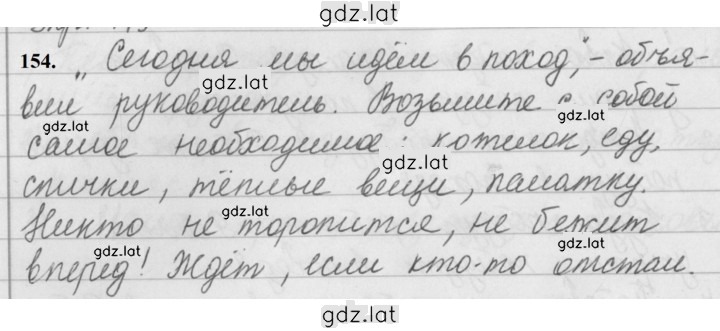 gdz.lat
154. „Сегодня мы идём в поход," - объя-
gdz.lat
вил руководитель. Возьмите с собой
gdz.lat gdz.lat
самое необходимое: котелок, еду,
gdz.lat
спички, тёплые вещи, палатку.
gdz.lat
Никто не торопится, не бежит
gdz.lat gdz.lat
вперед! Ждёт, если кто-то отстал.
gdz.lat